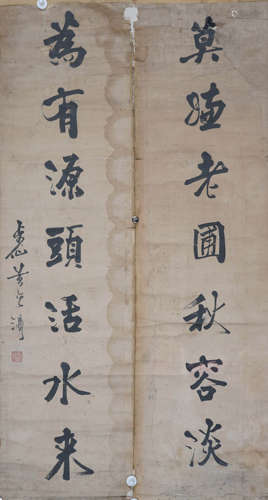 莫嫌老圃秋容淡
為有源頭活水来